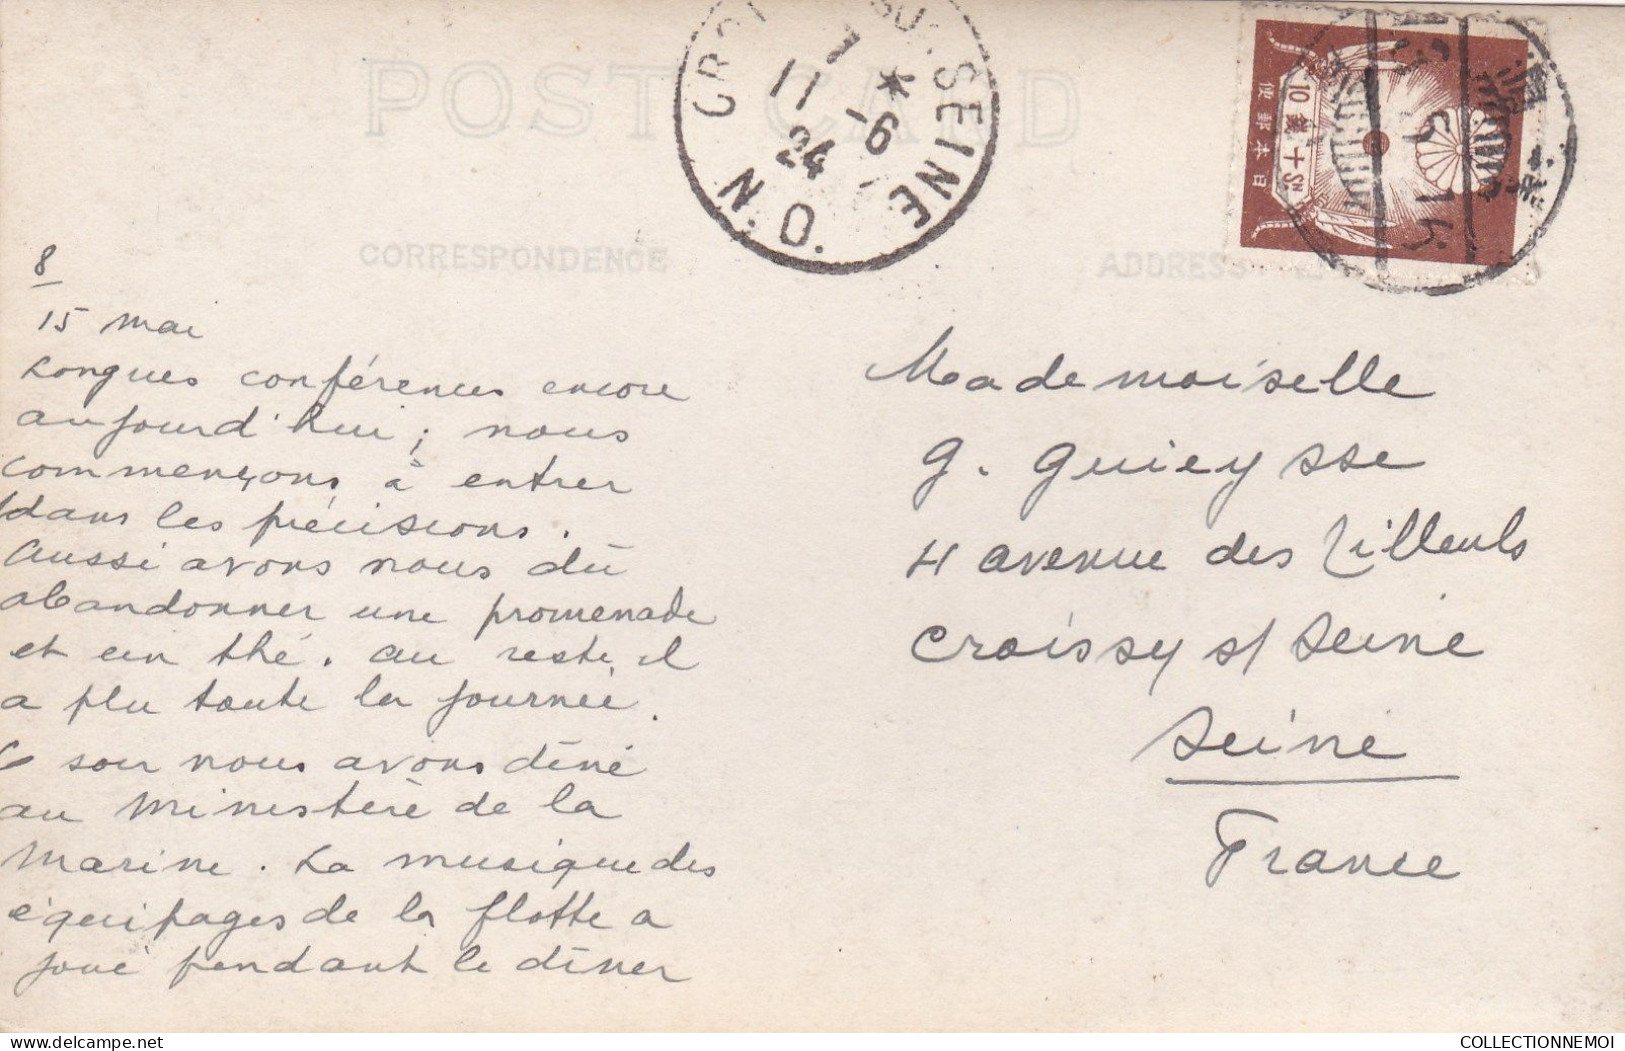 POST CARD
CORRESPONDENCE
ADDRESS
SEINE
7
11 -6
24
S.& O.
10 錢 十 Sn
便郵本日
8
15 mai
Longues conférences encore
aujourd'hui ; nous
commençons à entrer
dans les précisions.
Aussi avons nous dû
abandonner une promenade
et un thé. Au reste, il
a plu toute la journée.
Ce soir nous avons dîné
au Ministère de la
Marine. La musique des
équipages de la flotte a
joué pendant le dîner
Mademoiselle
G. Guieysse
4 avenue des Tilleuls
Croissy s/ Seine
Seine
France
COLLECTIONNEMOI